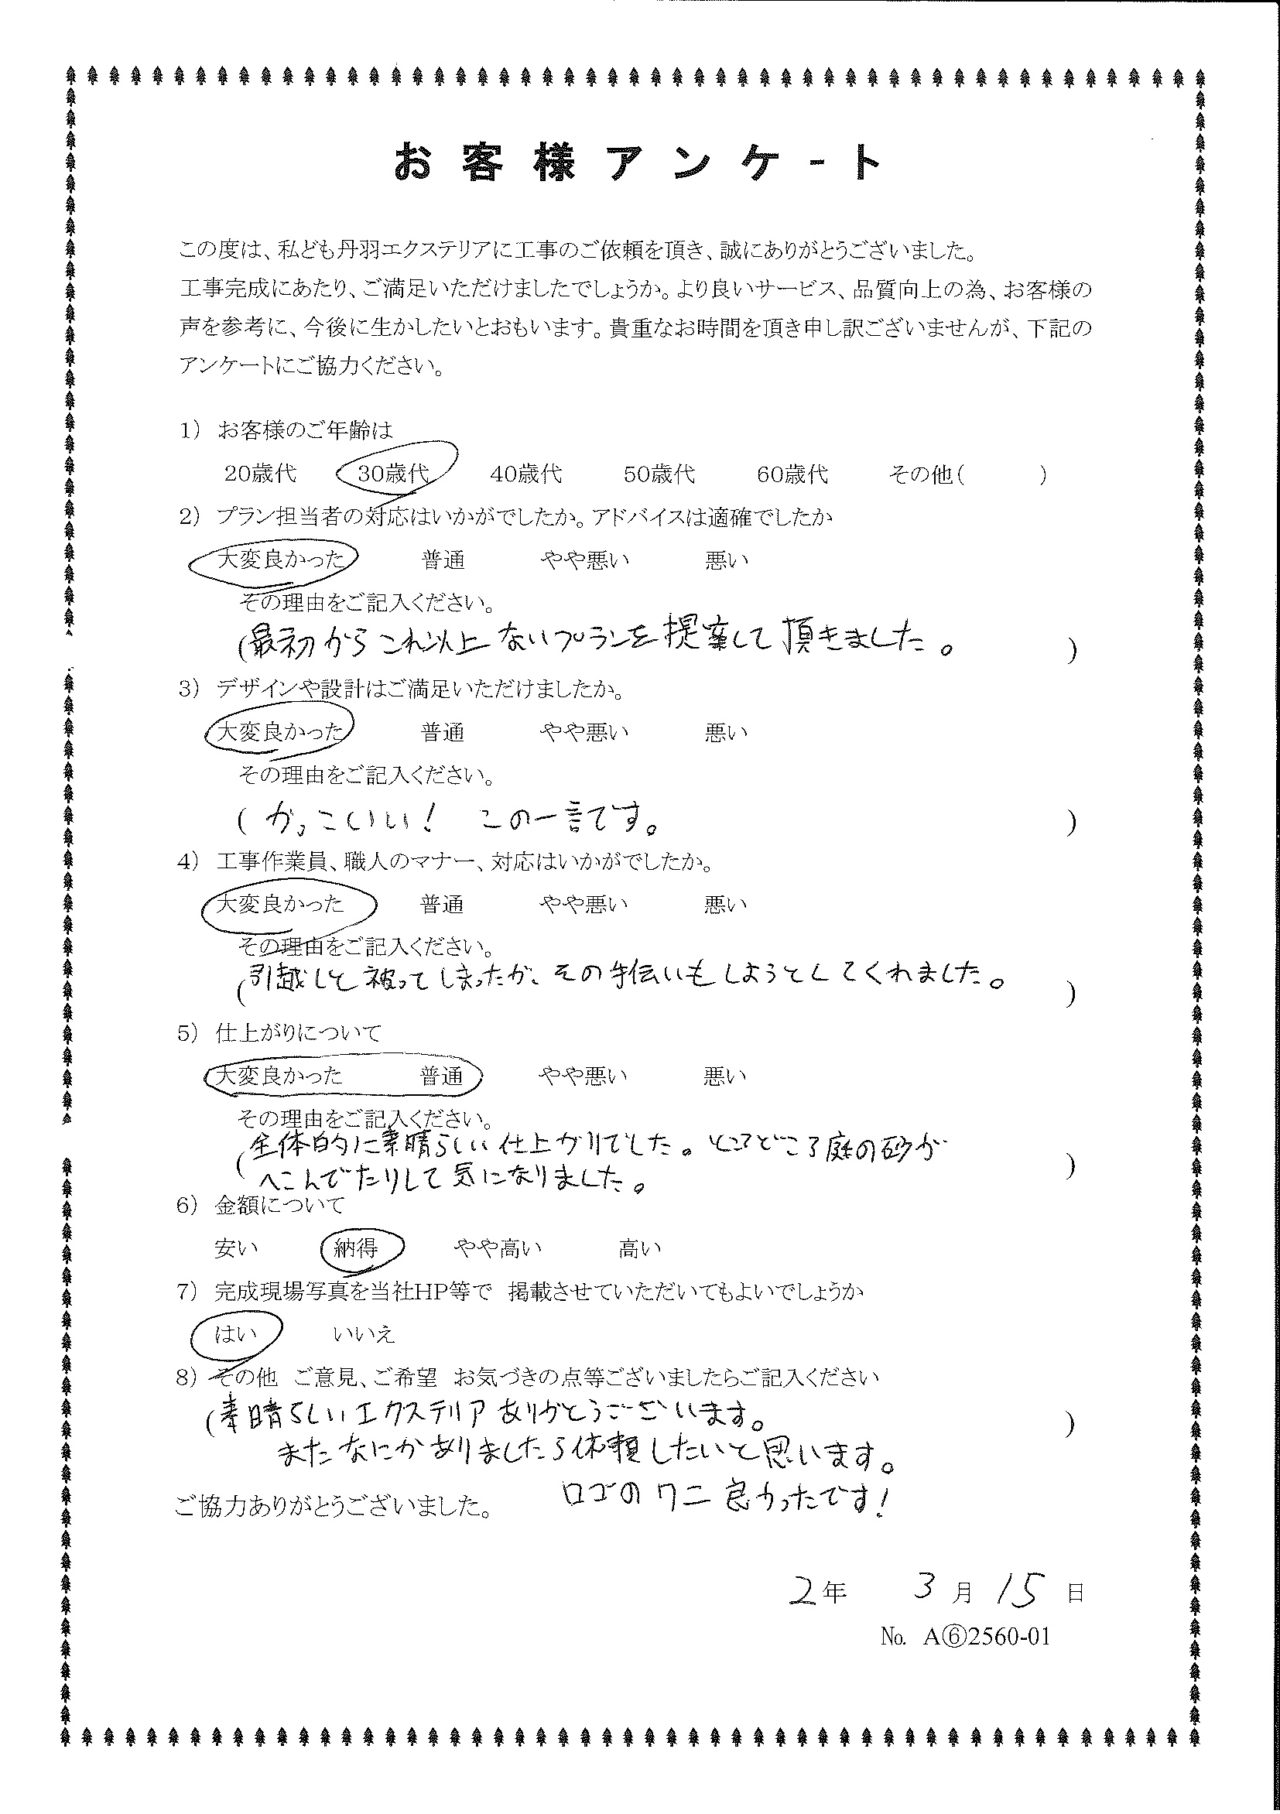 お客様アンケ-ト
この度は、私ども丹羽エクステリアに工事のご依頼を頂き、誠にありがとうございました。
工事完成にあたり、ご満足いただけましたでしょうか。より良いサービス、品質向上の為、お客様の
声を参考に、今後に生かしたいとおもいます。貴重なお時間を頂き申し訳ございませんが、下記の
アンケートにご協力ください。
1) お客様のご年齢は
20歳代 30歳代 40歳代 50歳代 60歳代 その他( )
2) プラン担当者の対応はいかがでしたか。アドバイスは適確でしたか
大変良かった 普通 やや悪い 悪い
その理由をご記入ください。
(最初からこれ以上ないプランを提案して頂きました。 )
3) デザインや設計はご満足いただけましたか。
大変良かった 普通 やや悪い 悪い
その理由をご記入ください。
( かっこいい! この一言です。 )
4) 工事作業員、職人のマナー、対応はいかがでしたか。
大変良かった 普通 やや悪い 悪い
その理由をご記入ください。
(引越しと被ってしまったが、その手伝いもしようとしてくれました。 )
5) 仕上がりについて
大変良かった 普通 やや悪い 悪い
その理由をご記入ください。
(全体的に素晴らしい仕上がりでした。ところどころ庭の砂が
へこんでたりして気になりました。 )
6) 金額について
安い 納得 やや高い 高い
7) 完成現場写真を当社HP等で 掲載させていただいてもよいでしょうか
はい いいえ
8) その他 ご意見、ご希望 お気づきの点等ございましたらご記入ください
(素晴らしいエクステリアありがとうございます。 )
またなにかありましたら依頼したいと思います。
ロゴのワニ良かったです!
ご協力ありがとうございました。
2年 3月15日
№ A⑥2560-01